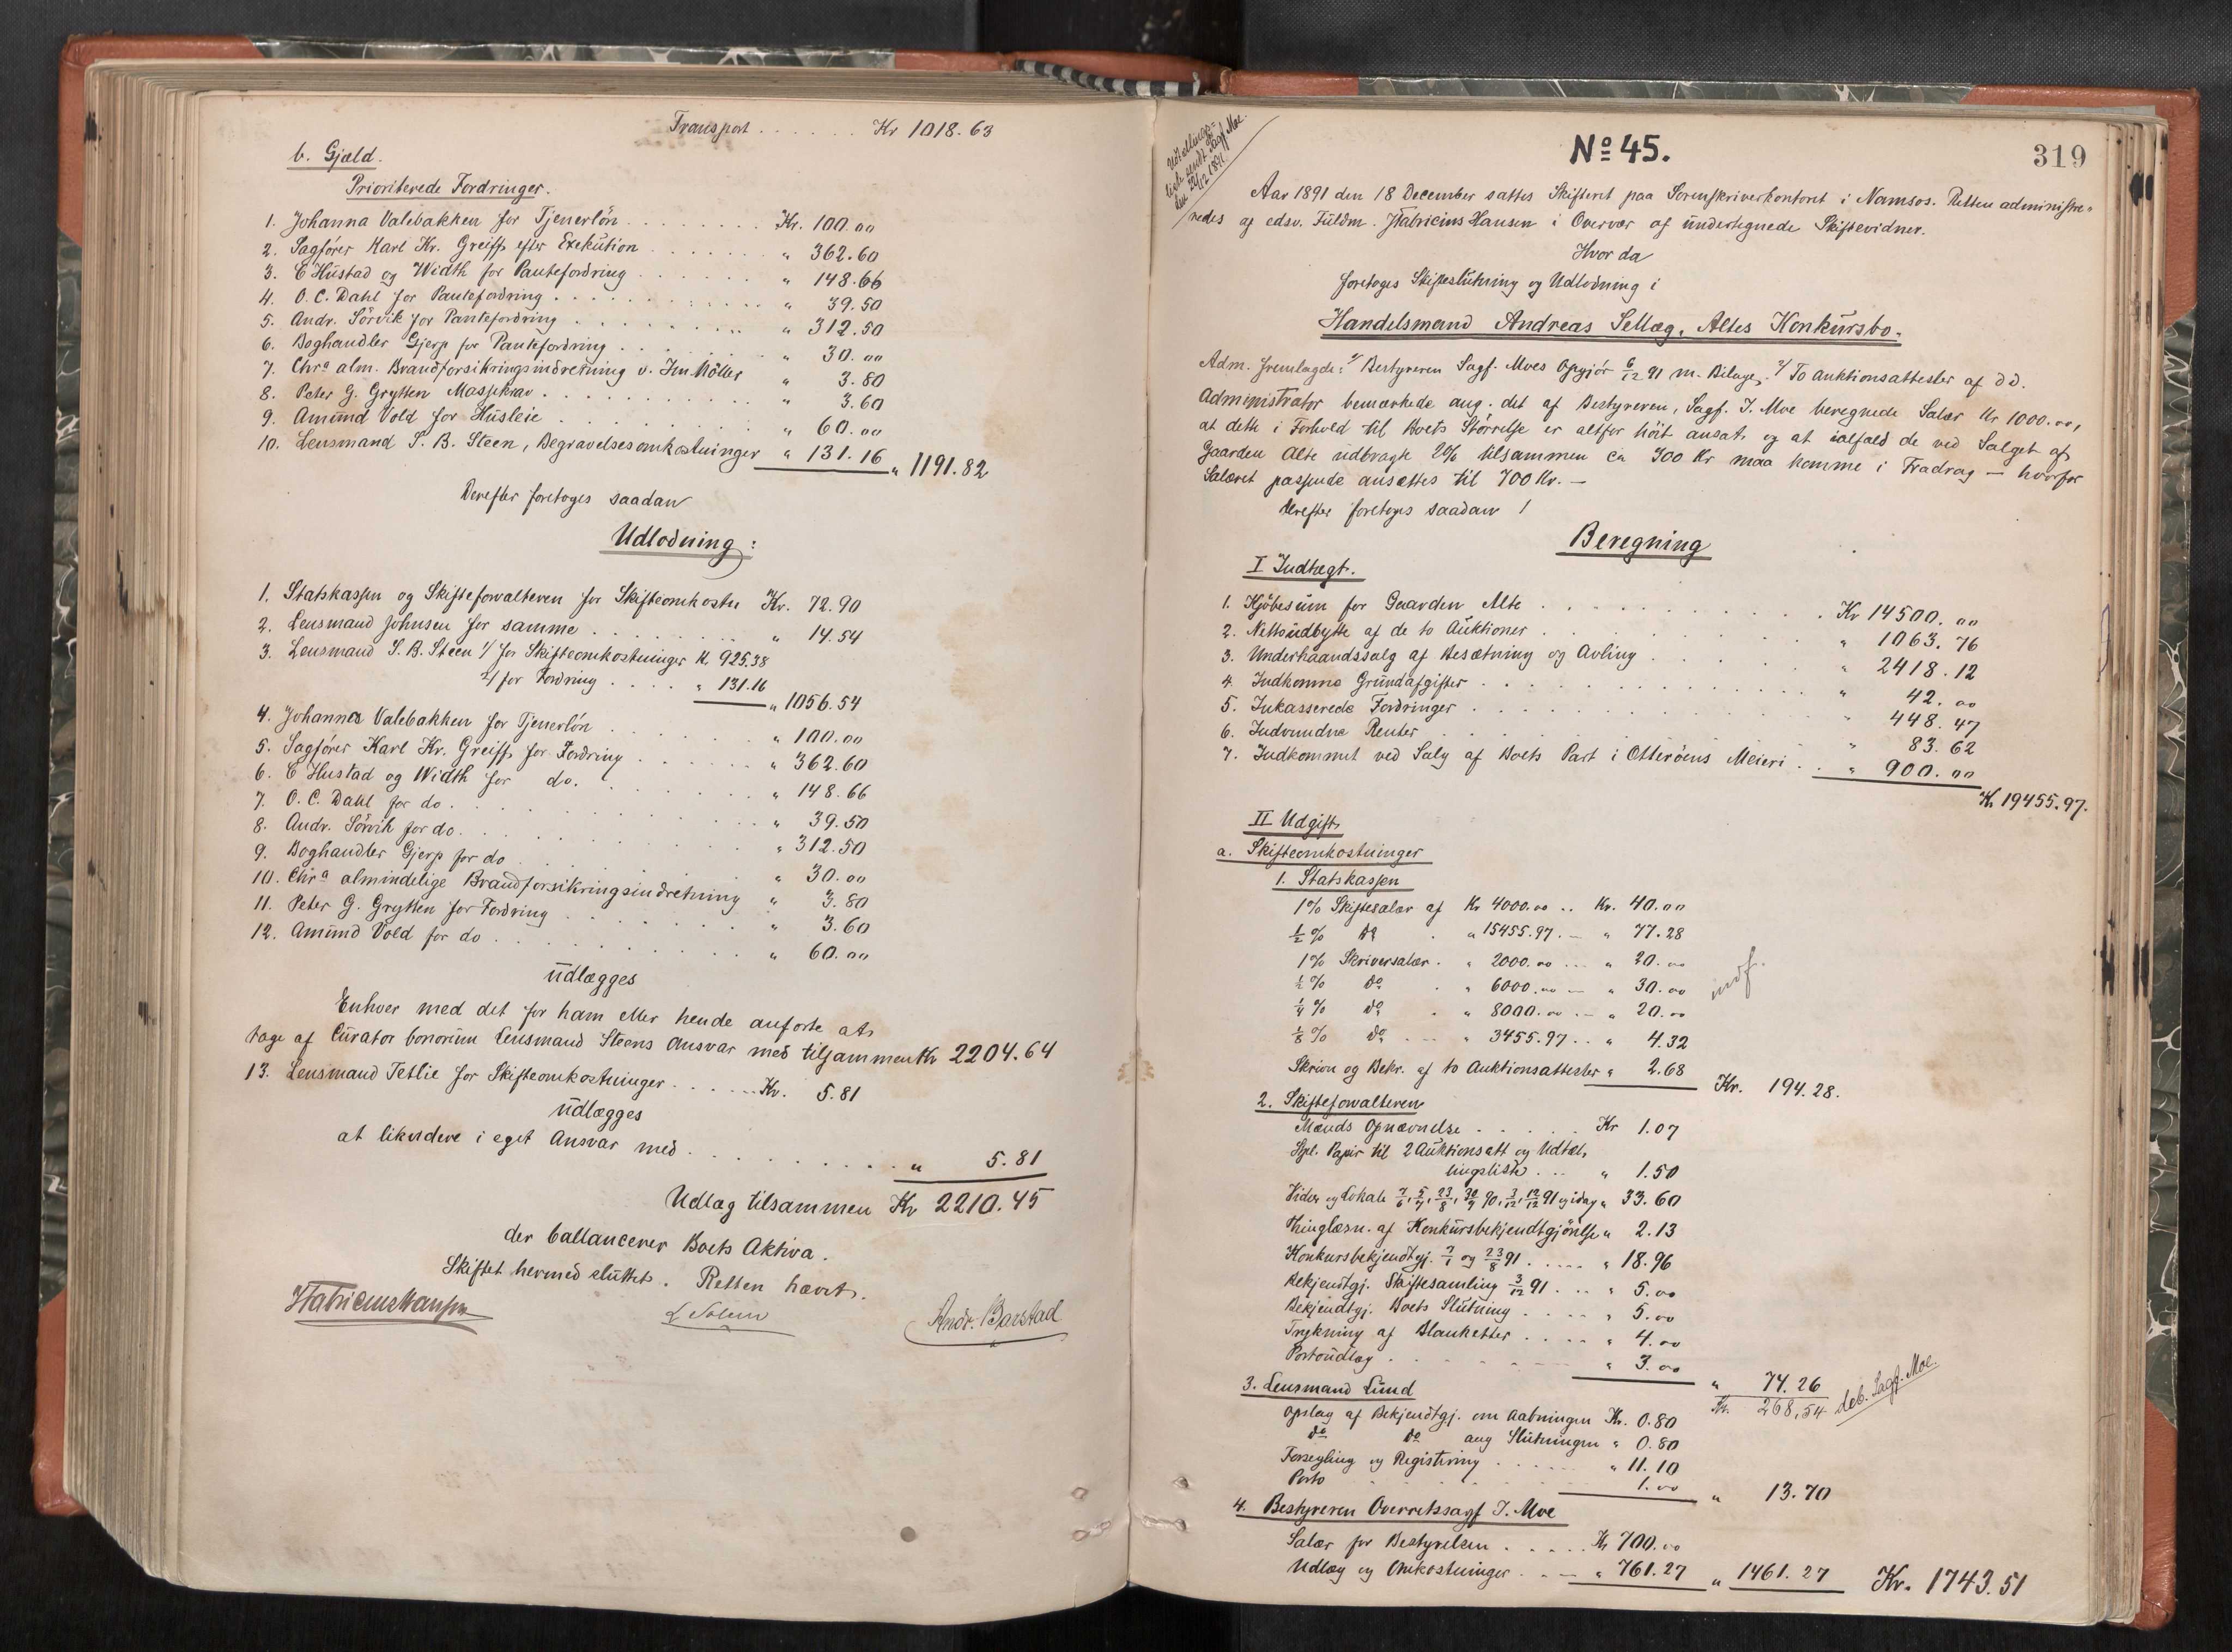 Transport . . . . . . Kr 1018.63
b. Gjæld.
Prioriterede Fordringer.
1. Johanna Valebakken for Tjenerlön . . . . . . . Kr. 100.00
2. Sagförer Karl Kr. Greiff efter Exekution . . . . . . " 362.60
3. C Hustad og Width for Pantefordring . . . . . . " 148.66
4. O. C. Dahl for Pantefordring . . . . . . . . . " 39.50
5. Andr. Sörvik for Pantefordring . . . . . . . . " 312.50
6. Boghandler Gjerp for Pantefordring . . . . . . " 30.00
7. Chra alm. Brandforsikringsindretning v. Im. Möller " 3.80
8. Peter G. Grytten Massekrav . . . . . . . . . . " 3.60
9. Amund Vold for Husleie . . . . . . . . . . " 60.00
10. Lensmand S. B. Steen, Begravelsesomkostninger " 131.16 " 1191.82
Derefter foretoges saadan
Udlodning:
1. Statskassen og Skifteforvalteren for Skifteomkostn Kr. 72.90
2. Lensmand Johnsen for samme . . . . . . . . " 14.54
3. Lensmand S. B. Steen 1/ for Skifteomkostninger K. 925.38
2/ for Fordring . . . . " 131.16
" 1056.54
4. Johanna Valebakken for Tjenerlön . . . . . . " 100.00
5. Sagförer Karl Kr. Greiff for Fordring . . . . . . " 362.60
6. C Hustad og Width for do. . . . . . . . " 148.66
7. O. C. Dahl for do. . . . . . . . . . " 39.50
8. Andr. Sörvik for do. . . . . . . . . . " 312.50
9. Boghandler Gjerp for do . . . . . . . . " 30.00
10. Chra almindelige Brandforsikringsindretning " 3.80
11. Peter G. Grytten for Fordring . . . . . . " 3.60
12. Amund Vold for do . . . . . . . . . . " 60.00
udlægges
Enhver med det for ham eller hende anförte at
tage af Curator bonorum Lensmand Steens Ansvar med tilsammen Kr 2204.64
13. Lensmand Tetlie for Skifteomkostninger . . . . . Kr. 5.81
udlægges
at likvidere i eget Ansvar med . . . . . . . . . . " 5.81
Udlæg tilsammen Kr 2210.45
der ballancerer Boets Aktiva.
Skiftet hermed sluttet. Retten hævet.
JFabriciusHansen
L Solem
Andr. Barstad
Udtællings=
liste sendt Sagf Moe.
den 22/12 1891.
No 45.
319
Aar 1891 den 18 December sattes Skifteret paa Sorenskriverkontoret i Namsos. Retten administre=
redes af edsv. Fuldm. JFabricius Hansen i Overvær af undertegnede Skiftevidner.
Hvor da
foretoges Skifteslutning og Udlodning i
Handelsmand Andreas Sellæg, Altes Konkursbo.
Adm. fremlagde: 1/ Bestyreren Sagf. Moes Opgjör 6/12 91 m. Bilage. 2/ To Auktionsattester af D.D.
Administrator bemærkede ang. det af Bestyreren, Sagf. J. Moe beregnede Salær Kr 1000.00,
at dette i Forhold til Boets Störrelse er altfor höit ansat, og at ialfald de ved Salget af
Gaarden Alte udbragte 2% tilsammen ca 300 Kr maa komme i Fradrag — hvorfor
Salæret passende ansættes til 700 Kr. —
Derefter foretoges saadan /
Beregning
I Indtægt.
1. Kjöbesum for Gaarden Alte . . . . . . . . . . . Kr 14500.00
2. Nettoudbytte af de to Auktioner . . . . . . . . . " 1063.76
3. Underhaandssalg af Besætning og Avling . . . . . " 2418.12
4. Indkomne Grundafgifter . . . . . . . . . . . " 42.00
5. Inkasserede Fordringer . . . . . . . . . . . " 448.47
6. Indvundne Renter . . . . . . . . . . . . . " 83.62
7. Indkommet ved Salg af Boets Part i Otteröens Meieri . . " 900.00
Kr 19455.97.
II Udgift
a. Skifteomkostninger
1. Statskassen
1% Skiftesalær af Kr 4000.00 .. Kr. 40.00
1/2 % do . " 15455.97. — " 77.28
1% Skriversalær . " 2000.00 ... " 20.00
1/2 % do . " 6000.00 — " 30.00
1/4 % do . " 8000.00 . — " 20.00
1/8 % do . . . " 3455.97 . . " 4.32
indf.
Skrivn og Bekr. af to Auktionsattester " 2.68
Kr. 194.28.
2. Skifteforvalteren
Mænds Opnævnelse . . . . . Kr 1.07
Stpl. Papir til 2 Auktionsatt og Udtæl,
lingsliste . . . " 1.50
Vidner og Lokale 7/6, 5/7, 23/8, 30/9 90, 3/12, 12/12 91 og idag " 33.60
Thinglæsn. af Konkursbekjendtgjörelse " 2.13
Konkursbekjendtgj. 7/1 og 23/8 91 . . . . . " 18.96
Bekjendtgj. Skiftesamling 3/12 91 . . . " 5.00
Bekjendtgj. Boets Slutning . . . . " 5.00
Trykning af Blanketter . . . . " 4.00
Portoudlæg . . . . . . " 3.00
" 74.26
Kr. 268,54 deb. Sagf. Moe.
3. Lensmand Lund
Opslag af Bekjendtgj. om Aabningen Kr. 0.80
do do ang Slutningen " 0.80
Forsegling og Registrering . . . . . . " 11.10
Porto . . . . . . . 1.00
" 13.70
4. Bestyreren Overretssagf J. Moe
Salær for Bestyrelsen . . . . . Kr 700.00
Udlæg og Omkostninger . . — " 761.27 " 1461.27 Kr. 1743.51